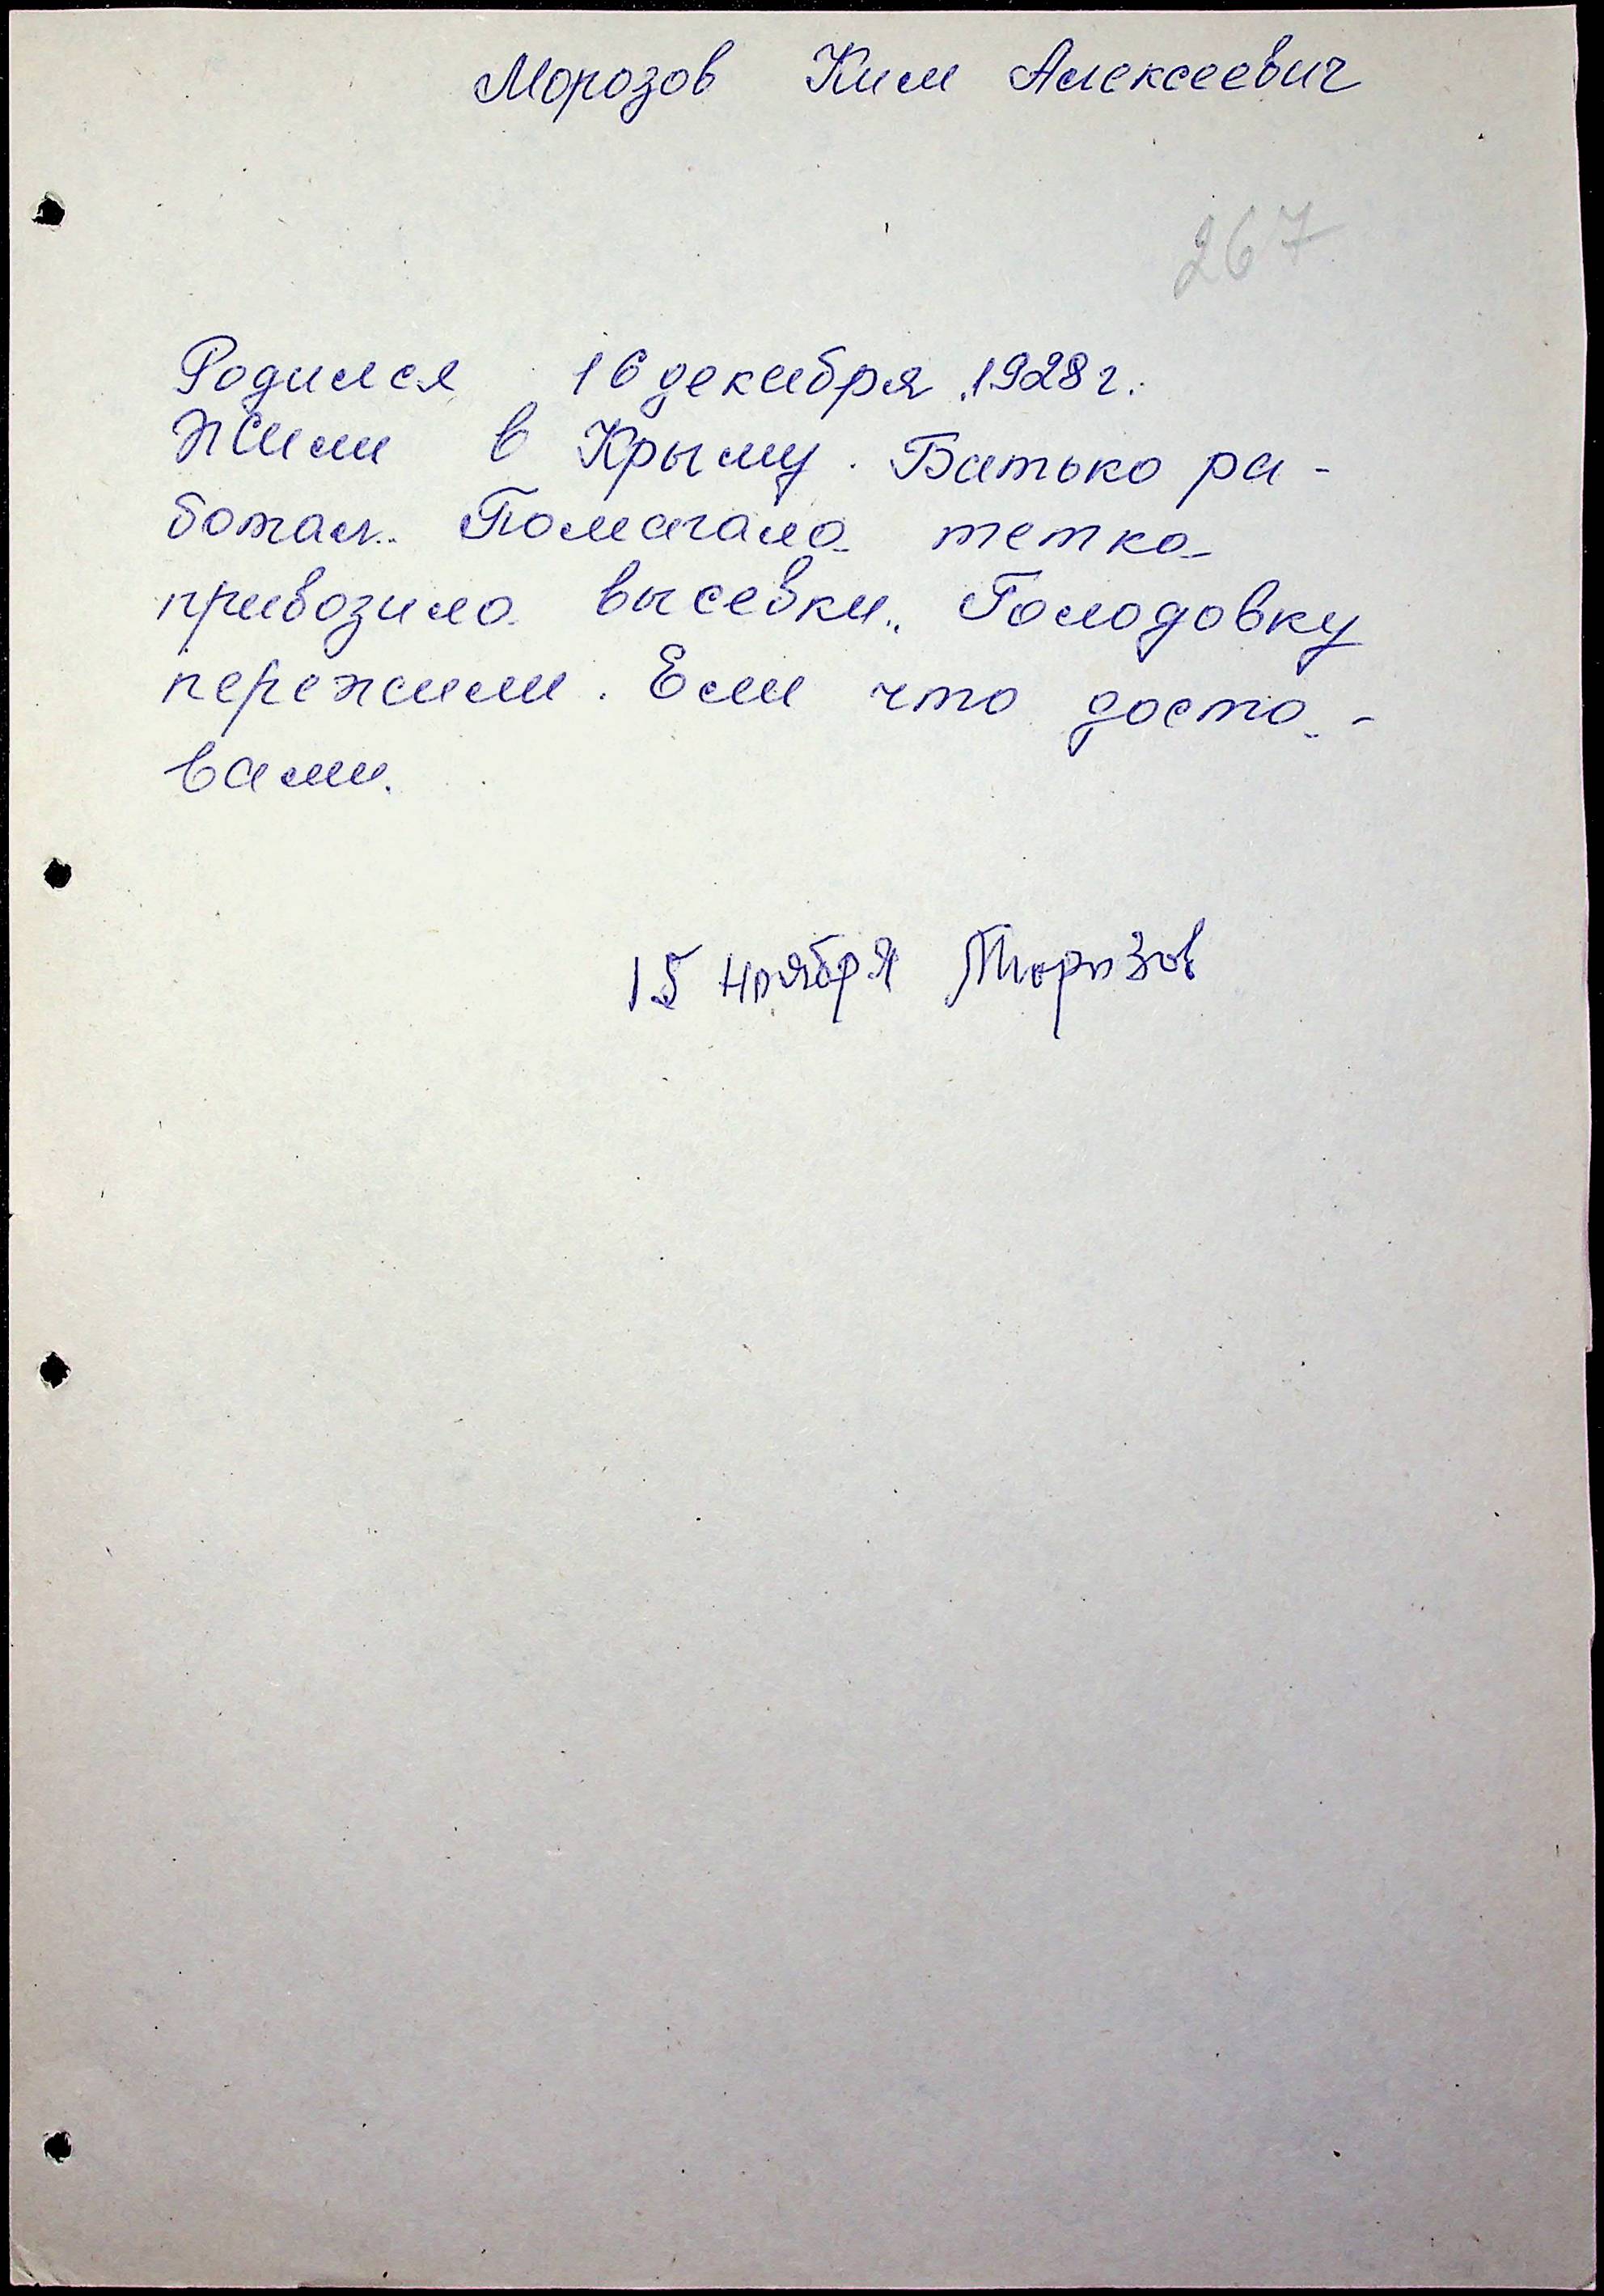 Морозов Ким Алексеевич
267
Родился 16 декабря 1928 г.
Жили в Крыму. Батько ра-
ботал. Помагала тетка
привозила высевки. Голодовку
пережили. Ели что доста-
вали.
15 ноября Морозов